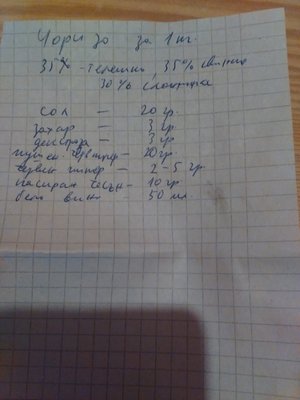 Чоризо за 1 кг.
35% - телешко, 35% свинско
30% сланина
сол - 20 гр.
захар - 3 гр.
декстроза - 3 гр.
пушен червен пипер - 20 гр.
пипер - 2-5 гр.
пасиран чесън - 10 гр
бяло вино 50 мл.